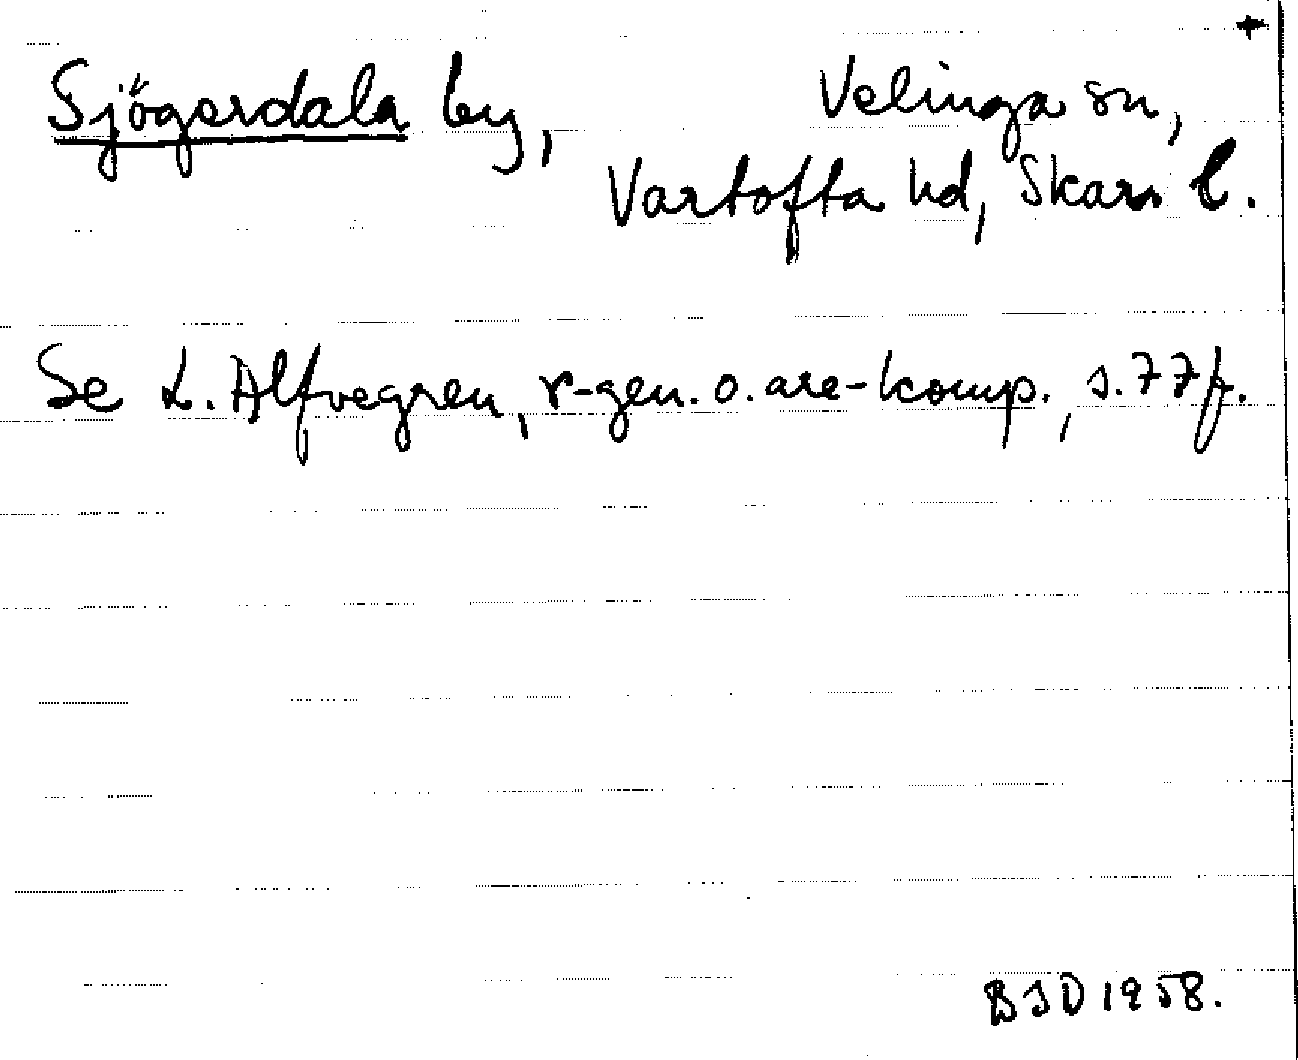 Sjögerdala by, Velinga sn,
Vartofta hd, Skarab. l.
Se L. Alfvegren, r-gen. o. are-komp., s. 77 f.
BJD 1958.